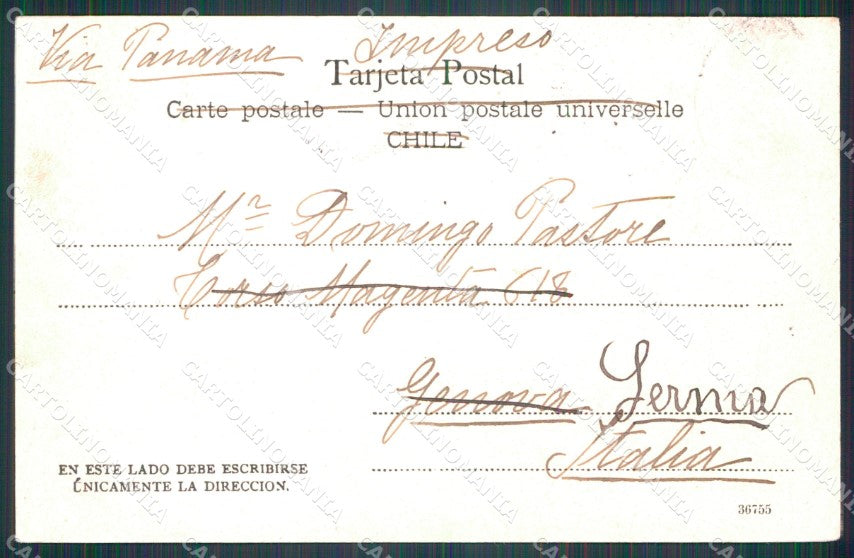 Via Panama Impreso
Tarjeta Postal
Carte postale — Union postale universelle
CHILE
Mr Domingo Pastore
Corso Magenta 618
Genova Lerma
Italia
EN ESTE LADO DEBE ESCRIBIRSE
ÚNICAMENTE LA DIRECCION.
36755
CARTOLINOMANIA